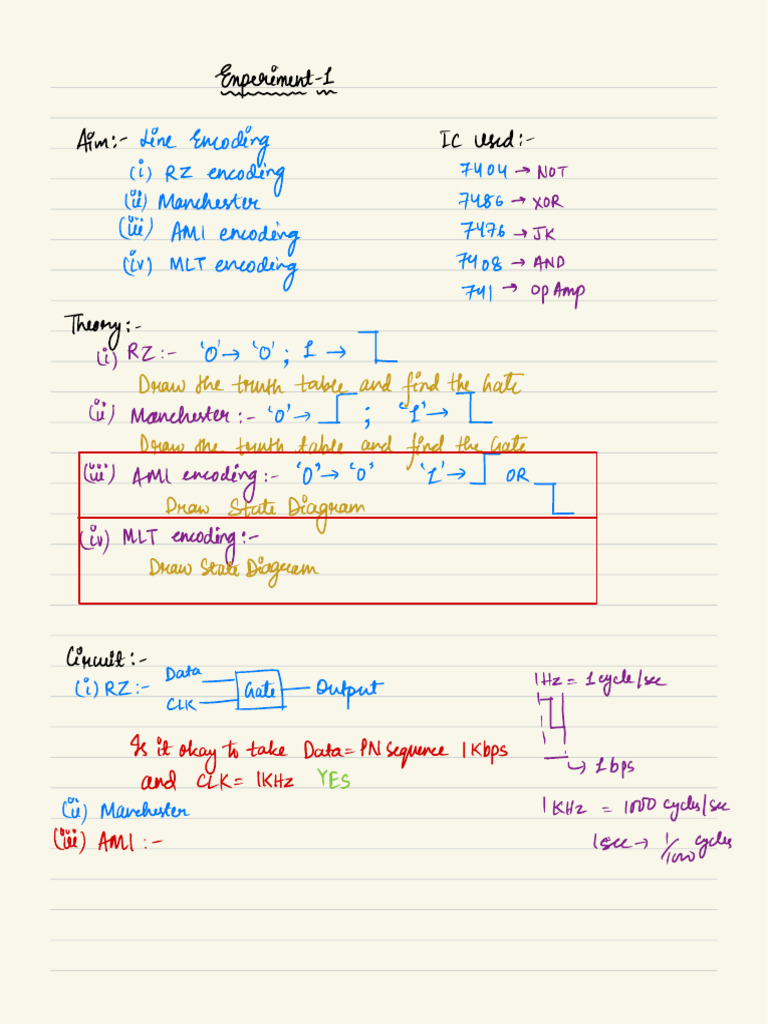 Experiment-1
Aim:- Line Encoding
(i) RZ encoding
(ii) Manchester
(iii) AMI encoding
(iv) MLT encoding
IC Used:-
7404 → NOT
7486 → XOR
7476 → JK
7408 → AND
741 → Op Amp
Theory:-
(i) RZ:- '0' → '0' ; 1 →
Draw the truth table and find the Gate
(ii) Manchester:- '0' → ; '1' →
Draw the truth table and find the Gate
(iii) AMI encoding:- '0' → '0' '1' → OR
Draw State Diagram
(iv) MLT encoding:-
Draw State Diagram
Circuit:-
(i) RZ:- Data
CLK
Gate
Output
Is it okay to take Data = PN sequence 1Kbps
and CLK = 1KHz YES
(ii) Manchester
(iii) AMI:-
1Hz = 1 cycle/sec
↳ 1 bps
1 KHz = 1000 cycles/sec
1sec → 1/1000 cycles